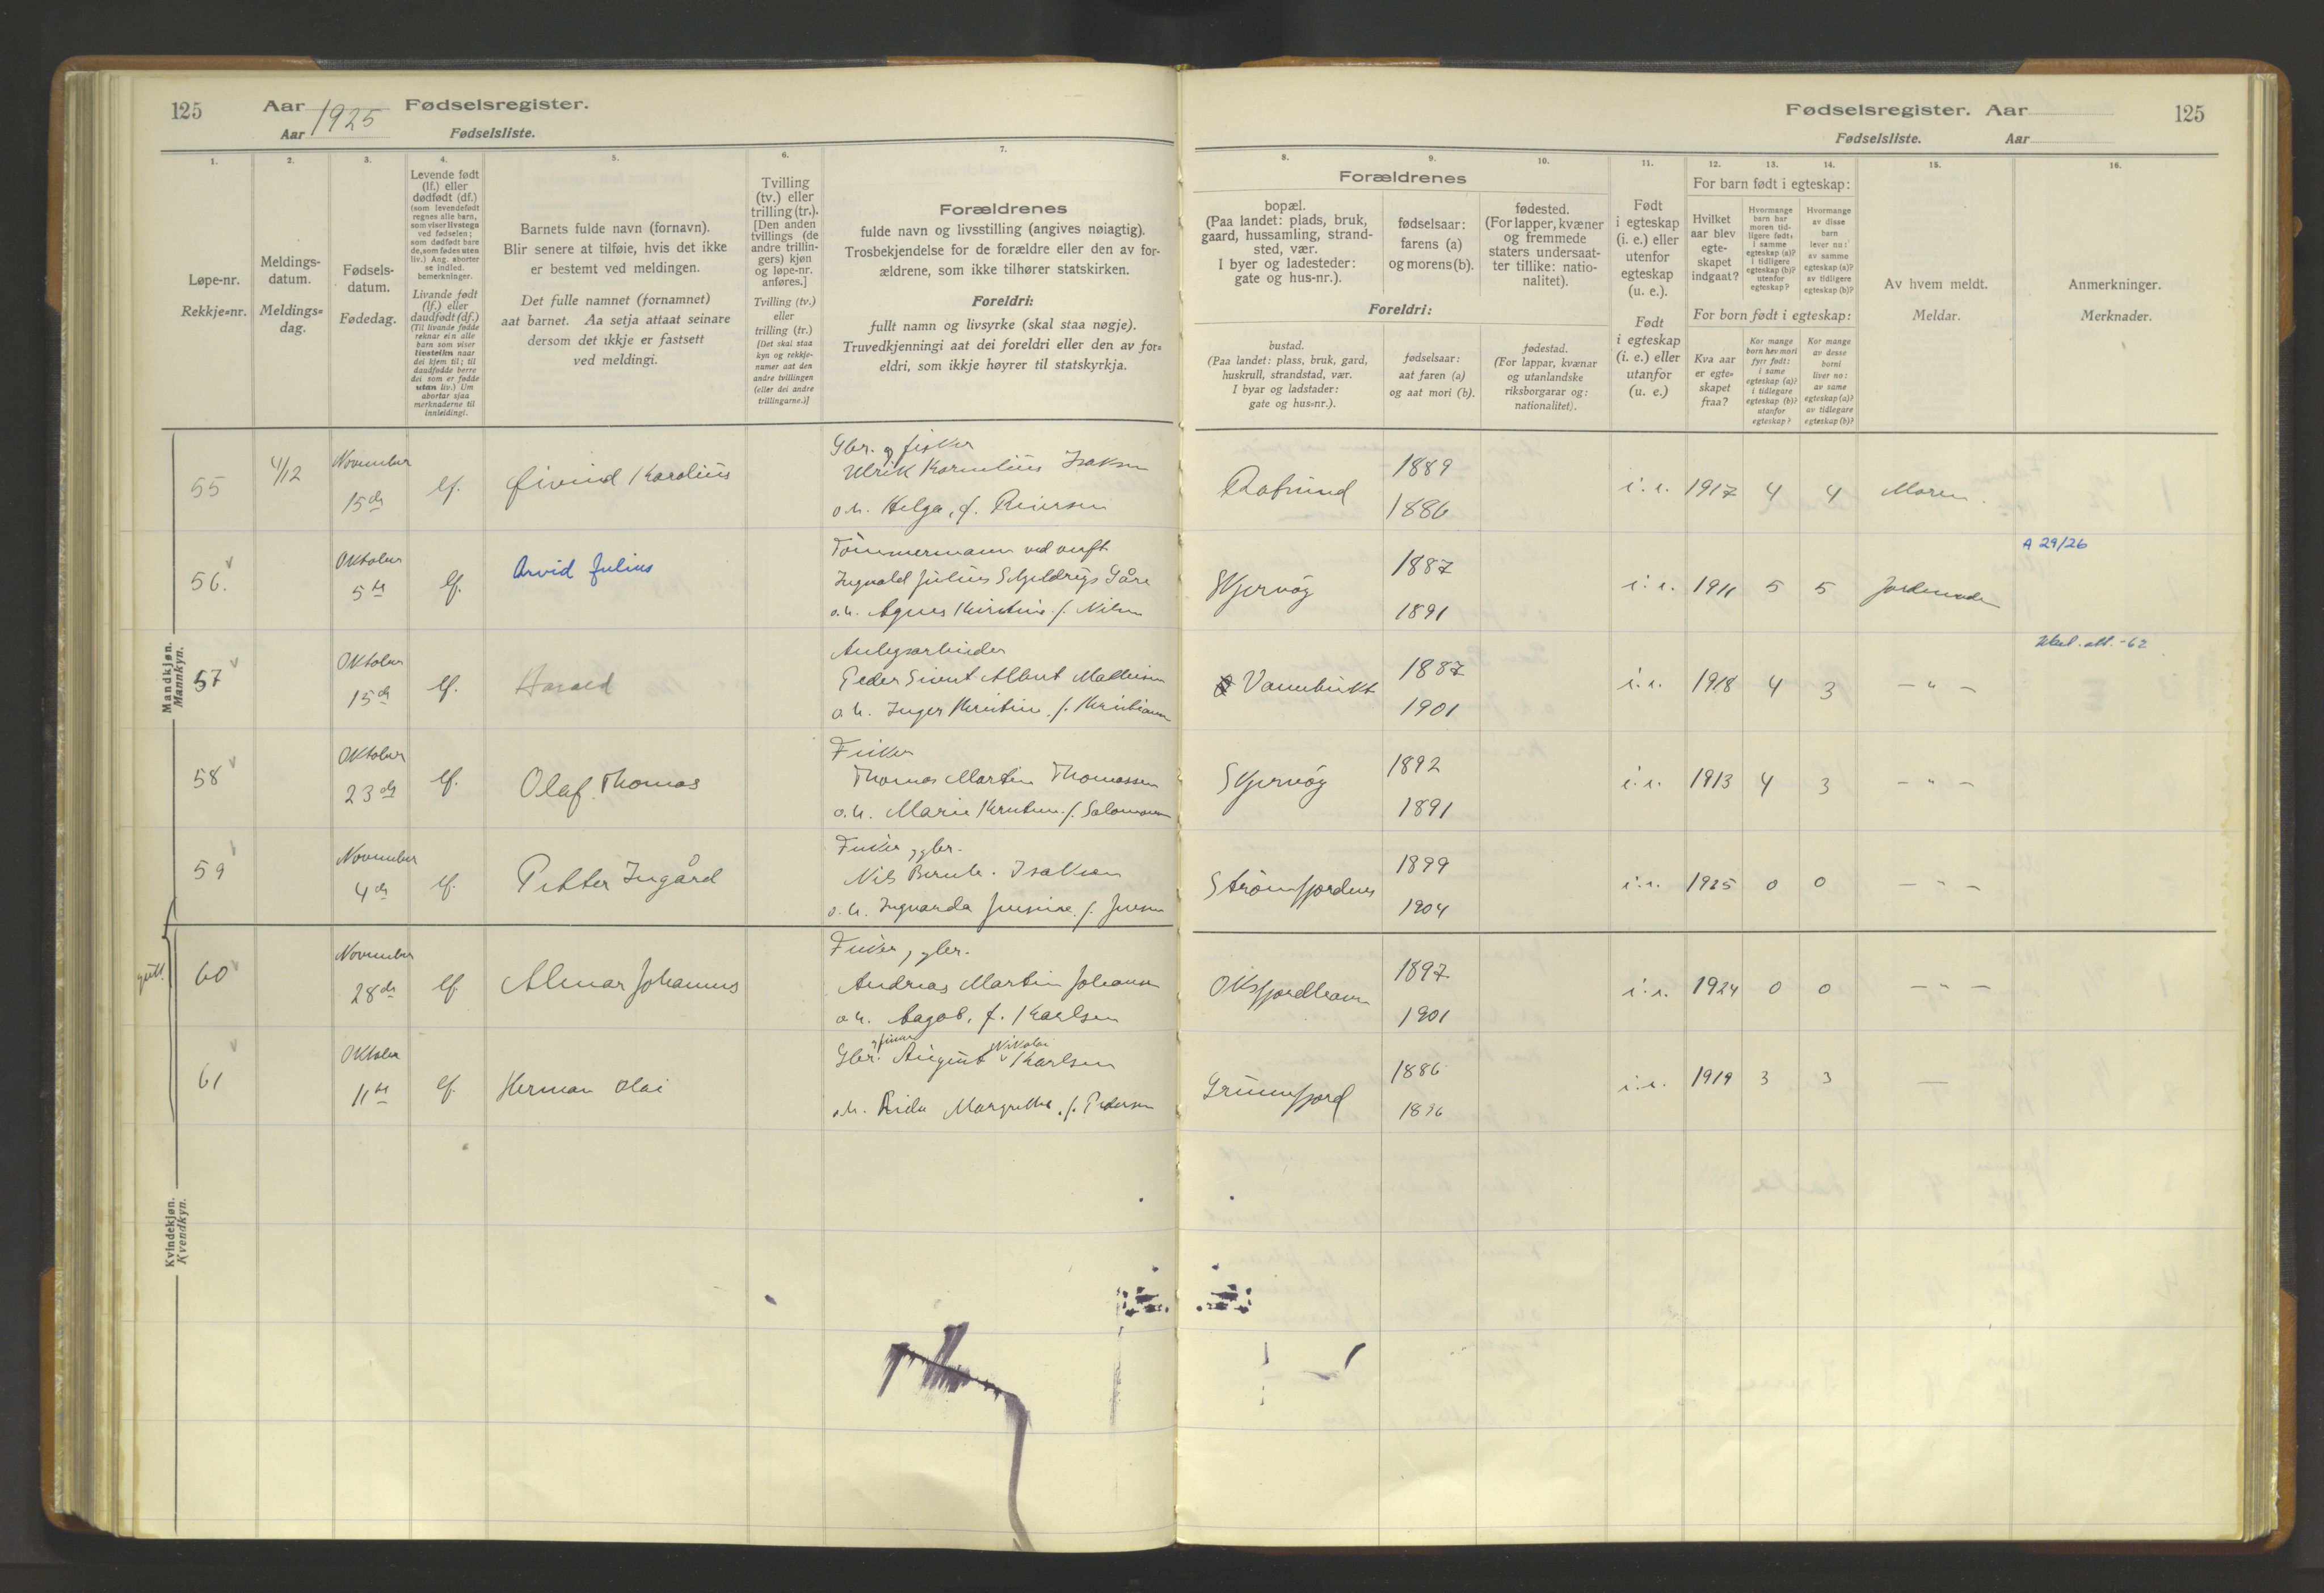 125 Aar 1925 Fødselsregister.
Aar Fødselsliste.
1. 2. 3. 4. 5. 6. 7.
Løpe-nr.
Rekkje=nr.
Meldings-
datum.
Meldings=
dag.
Fødsels-
datum.
Fødedag.
Levende født
(lf.) eller
dødfødt (df.)
(som levendefødt
regnes alle barn,
som viser livstegn
ved fødselen;
som dødfødt bare
de, som fødes uten
liv.) Ang. aborter
se indled.
bemerkninger.
Livande født
(lf.) eller
daudfødt (df.)
(Til livande fødde
reknar ein alle
born som viser
livsteikn naar
dei kjem til; til
daudfødde berre
dei som er fødde
utan liv.) Um
abortar sjaa
merknaderne til
innleidingi.
Barnets fulde navn (fornavn).
Blir senere at tilføie, hvis det ikke
er bestemt ved meldingen.
Det fulle namnet (fornamnet)
aat barnet. Aa setja attaat seinare
dersom det ikkje er fastsett
ved meldingi.
Tvilling
(tv.) eller
trilling (tr.).
[Den anden
tvillings (de
andre trillin-
gers) kjøn
og løpe-nr.
anføres.]
Tvilling (tv.)
eller
trilling (tr.)
[Det skal staa
kyn og rekkje-
numer aat den
andre tvillingen
(eller dei andre
trillingarne.)]
Forældrenes
fulde navn og livsstilling (angives nøiagtig).
Trosbekjendelse for de forældre eller den av for-
ældrene, som ikke tilhører statskirken.
Foreldri:
fullt namn og livsyrke (skal staa nøgje).
Truvedkjenningi aat dei foreldri eller den av for=
eldri, som ikkje høyrer til statskyrkja.
Fødselsregister. Aar 125
Fødselsliste. Aar
8. 9. 10. 11. 12. 13. 14. 15. 16.
Forældrenes
bopæl.
(Paa landet: plads, bruk,
gaard, hussamling, strand-
sted, vær.
I byer og ladesteder:
gate og hus-nr.).
fødselsaar:
farens (a)
og morens (b).
fødested.
(For lapper, kvæner
og fremmede
staters undersaat-
ter tillike: natio-
nalitet).
Foreldri:
bustad.
(Paa landet: plass, bruk, gard,
huskrull, strandstad, vær.
I byar og ladstader:
gate og hus=nr.).
fødselsaar:
aat faren (a)
og aat mori (b).
fødestad.
(For lappar, kvænar
og utanlandske
riksborgarar og:
nationalitet).
Født
i egteskap
(i. e.) eller
utenfor
egteskap
(u. e.).
Født
i egteskap
(i. e.) eller
utanfor
(u. e.)
For barn født i egteskap:
Hvilket
aar blev
egte-
skapet
indgaat?
Hvormange
barn har
moren tid-
ligere født:
i samme
egteskap (a)?
i tidligere
egteskap (b)?
utenfor
egteskap?
Hvormange
av disse
barn
lever nu:
av samme
egteskap (a)?
av tidligere
egteskap (b)?
For born født i egteskap:
Kva aar
er egte=
skapet
fraa?
Kor mange
born hev mori
fyrr født:
i same
egteskap (a)?
i tidlegare
egteskap (b)?
utanfor
egteskap?
Kor mange
av desse
borni
liver no:
av same
egteskap (a)?
av tidlegare
egteskap (b)?
Av hvem meldt.
Meldar.
Anmerkninger.
Merknader.
Mandkjøn.
Mannkyn.
Kvindekjøn.
Kvendkyn.
gutt.
55 4/12 November 15de lf. Øivind Karolius
Gbr. og fisker
Ulrik Kornelius Isaksen
o.h. Helga, f. Reiersen
1889 1886 i.e. 1917 4 4 Moren.
56. Oktober 5te lf. Arvid Julius
Tømmermann
Ingvald Julius
o.h. Agnes Kirstine f. Nilsen
Skjervøy 1887 1891 i.e. 1911 5 5 Jordemoder A 29/26
57 Oktober 15de lf. Harald
Anlegsarbeider
Peder Sivert Albert Mathisen
o.h. Inger Kristine f. Kristiansen
Vannbukt 1887 1901 i.e. 1918 4 3 — " — Utst. att. -62
58 Oktober 23de lf. Olaf Thomas
Fisker
Thomas Martin Thomassen
o.h. Marie Kristine f. Salomonsen
Skjervøy 1892 1891 i.e. 1913 4 3 — " —
59 November 4de lf. Petter Ingård
Fisker, gbr.
Nils Bernh. Isaksen
o.h. Ingvarda f. Jensen
Strømfjordnes 1899 1904 i.e. 1925 0 0 — " —
60 November 28de lf. Almar Johannes
Fisker, gbr.
Andreas Martin Johansen
o.h. Aagot, f. Karlsen
Oksfjordhavn 1897 1901 i.e. 1924 0 0 — " —
61 Oktober 11te lf. Herman Olai
Gbr. og fisker August Nikolai Karlsen
o.h. Margrethe f. Pedersen
Grunnfjord 1886 1896 i.e. 1919 3 3 —